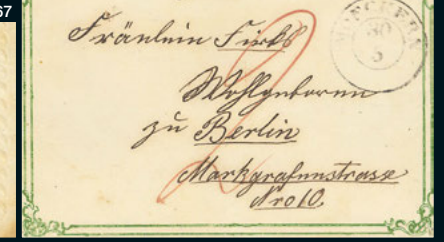 67
Fräulein Firks
Wohlgeboren
zu Berlin
Markgrafenstrasse
Nro 10.
30
3